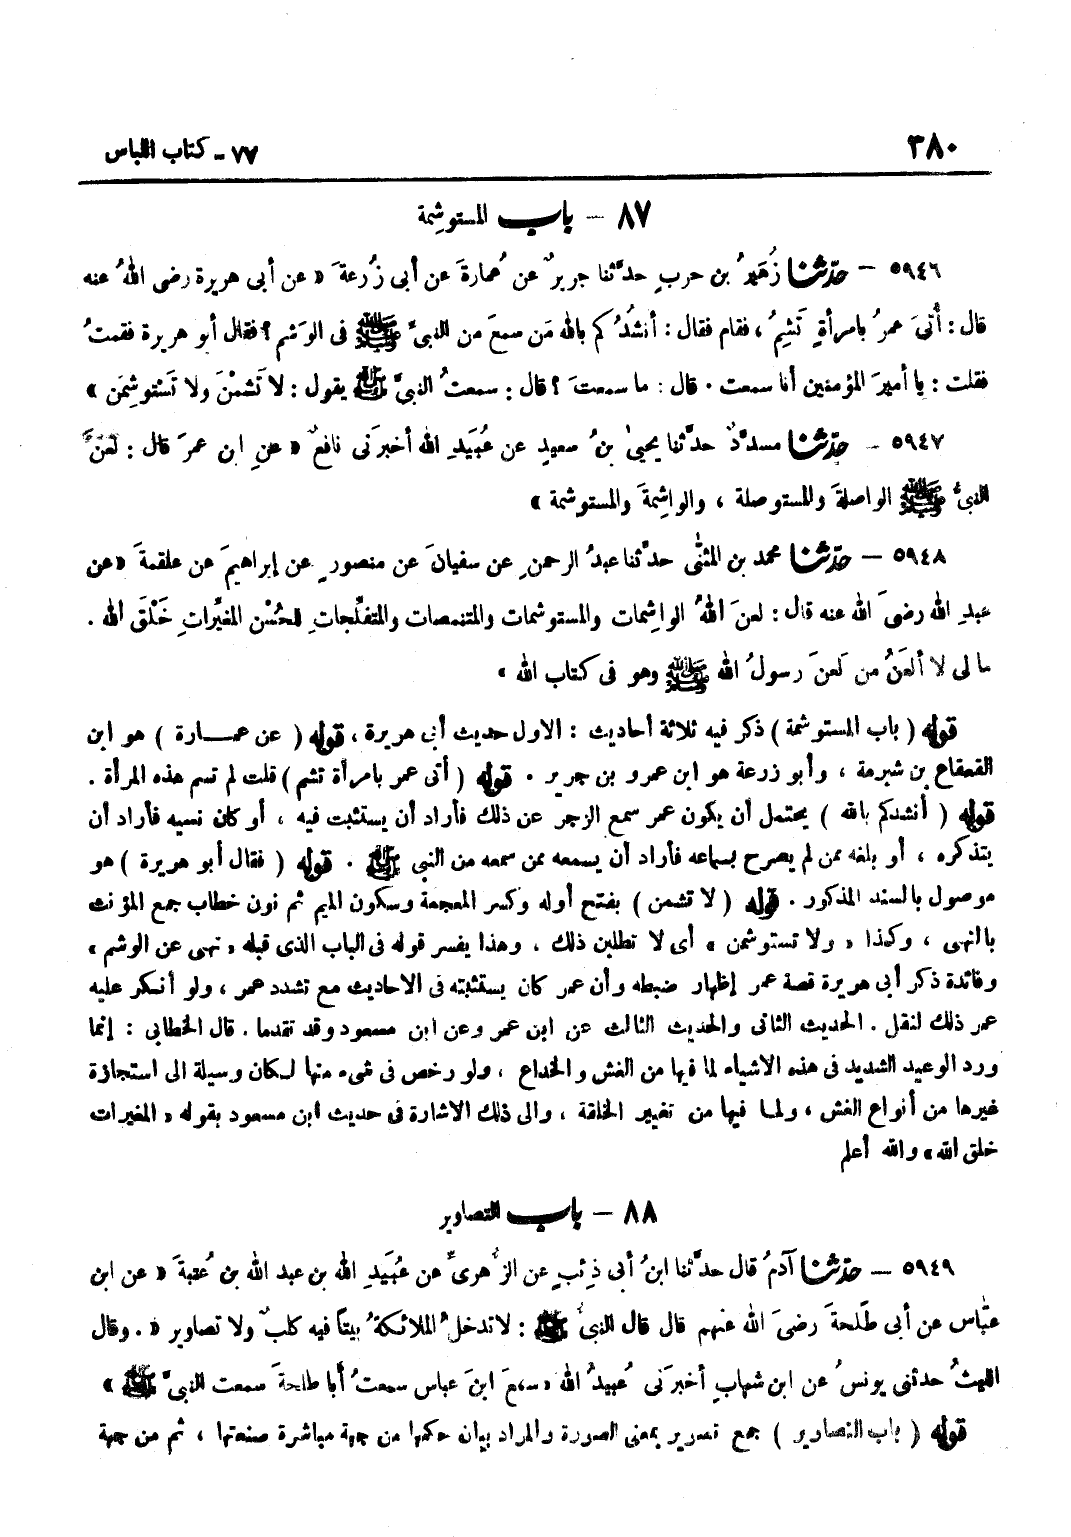 ٣٨٠
٧٧ - كتاب اللباس
٨٧ - باب المستوشِمة
٥٩٤٦ - حدّثنا زُهَيرُ بن حربٍ حدَّثنا جريرٌ عن عُمارةَ عن أبى زُرعةَ « عن أبى هريرة رضى اللهُ عنه
قال : أُتىَ عمرُ بامرأةٍ تَشِمُ ، فقام فقال : أنشدُكم بالله مَن سمعَ من النبىِّ ﷺ فى الوَشم ؟ فقال أبو هريرة فقمتُ
فقلت : يا أميرَ المؤمنين أنا سمعت . قال : ما سمعتَ ؟ قال : سمعتُ النبىَّ ﷺ يقول : لا تَشمْنَ ولا تَسْتوشِمَن »
٥٩٤٧ - حدّثنا مسدَّدٌ حدَّثنا يحيىٰ بنُ سعيدٍ عن عُبَيدِ الله أخبرَنى نافعٌ « عنِ ابن عمرَ قال : لَعَنَ
النبىُّ ﷺ الواصلةَ والمستوصلة ، والواشِمةَ والمستوشمة »
٥٩٤٨ - حدّثنا محمد بن المثنّٰى حدَّثنا عبدُ الرحمنِ عن سفيانَ عن منصورٍ عن إبراهيمَ عن علقمةَ « عن
عبدِ الله رضىَ الله عنه قال : لعنَ اللهُ الواشِمات والمستوشمات والمتنمصات والمتفلِّجاتِ للحُسْن المغيِّراتِ خَلْقَ الله .
مالى لا ألعَنُ من لَعنَ رسولُ الله ﷺ وهو فى كتاب الله »
قوله ( باب المستوشمة ) ذكر فيه ثلاثة أحاديث : الاول حديث أبى هريرة ، قوله ( عن عمـــارة ) هو ابن
القعقاع بن شبرمة ، وأبو زرعة هو ابن عمرو بن جرير . قوله ( أتى عمر بامرأة تشم ) قلت لم تسم هذه المرأة .
قوله ( أنشدكم بالله ) يحتمل أن يكون عمر سمع الزجر عن ذلك فأراد أن يستثبت فيه ، أو كان نسيه فأراد أن
يتذكره ، أو بلغه ممن لم يصرح بسماعه فأراد أن يسمعه ممن سمعه من النبى ﷺ . قوله ( فقال أبو هريرة ) هو
موصول بالسند المذكور . قوله ( لا تشمن ) بفتح أوله وكسر المعجمة وسكون الميم ثم نون خطاب جمع المؤنث
بالنهى ، وكذا « ولا تستوشمن » أى لا تطلبن ذلك ، وهذا يفسر قوله فى الباب الذى قبله « نهى عن الوشم »
وفائدة ذكر أبى هريرة قصة عمر إظهار ضبطه وأن عمر كان يستثبته فى الاحاديث مع تشدد عمر ، ولو أنكر عليه
عمر ذلك لنقل . الحديث الثانى والحديث الثالث عن ابن عمر وعن ابن مسعود وقد تقدما . قال الخطابى : إنما
ورد الوعيد الشديد فى هذه الاشياء لما فيها من الغش والخداع ، ولو رخص فى شىء منها لكان وسيلة الى استجازة
غيرها من أنواع الغش ، ولما فيها من تغيير الخلقة ، والى ذلك الاشارة فى حديث ابن مسعود بقوله « المغيرات
خلق الله » والله أعلم
٨٨ - باب التصاوير
٥٩٤٩ - حدّثنا آدمُ قال حدَّثنا ابنُ أبى ذِئبٍ عن الزُّهرىِّ عن عُبَيدِ الله بن عبد الله بن عُتبةَ « عن ابن
عبّاس عن أبى طَلحةَ رضىَ الله عنهم قال قال النبىُّ ﷺ : لا تدخلُ الملائكةُ بيتاً فيه كلبٌ ولا تصاوير » . وقال
الليثُ حدثنى يونسُ عن ابن شهابٍ أخبرَنى عُبيدُ الله « سمعَ ابنَ عباس سمعتُ أبا طلحةَ سمعت النبىَّ ﷺ »
قوله ( باب التصاوير ) جمع تصوير بمعنى الصورة والمراد بيان حكمها من جهة مباشرة صنعتها ، ثم من جهة